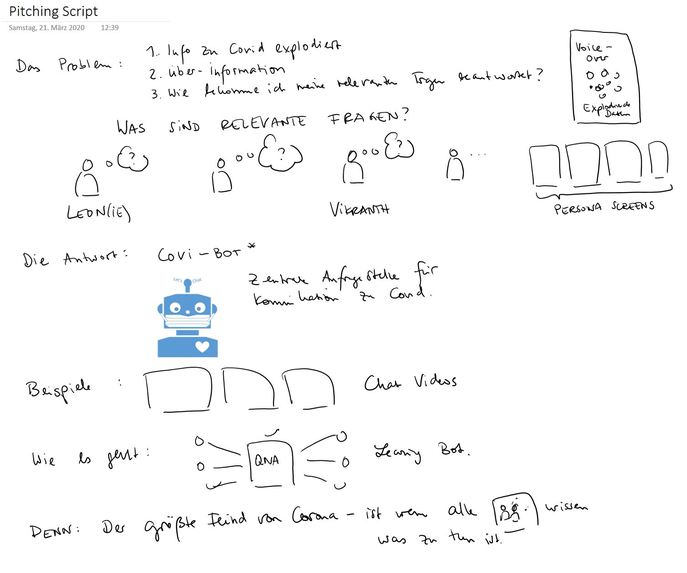 Pitching Script
Samstag, 21. März 2020 12:39
Das Problem:
1. Info zu Covid explodiert
2. über-information
3. Wie bekomme ich meine relevanten Fragen beantwortet?
Voice-
over
Explodierende
Daten
WAS SIND RELEVANTE FRAGEN?
? ? ? ...
LEON(IE) VIKRANTH
PERSONA SCREENS
Die Antwort: COVI-BOT*
Zentrale Anfragestelle für
Kommunikation zu Covid.
Beispiele: Chat Videos
Wie es geht: QNA Learning Bot.
DENN: Der größte Feind von Corona – ist wenn alle wissen
was zu tun ist.